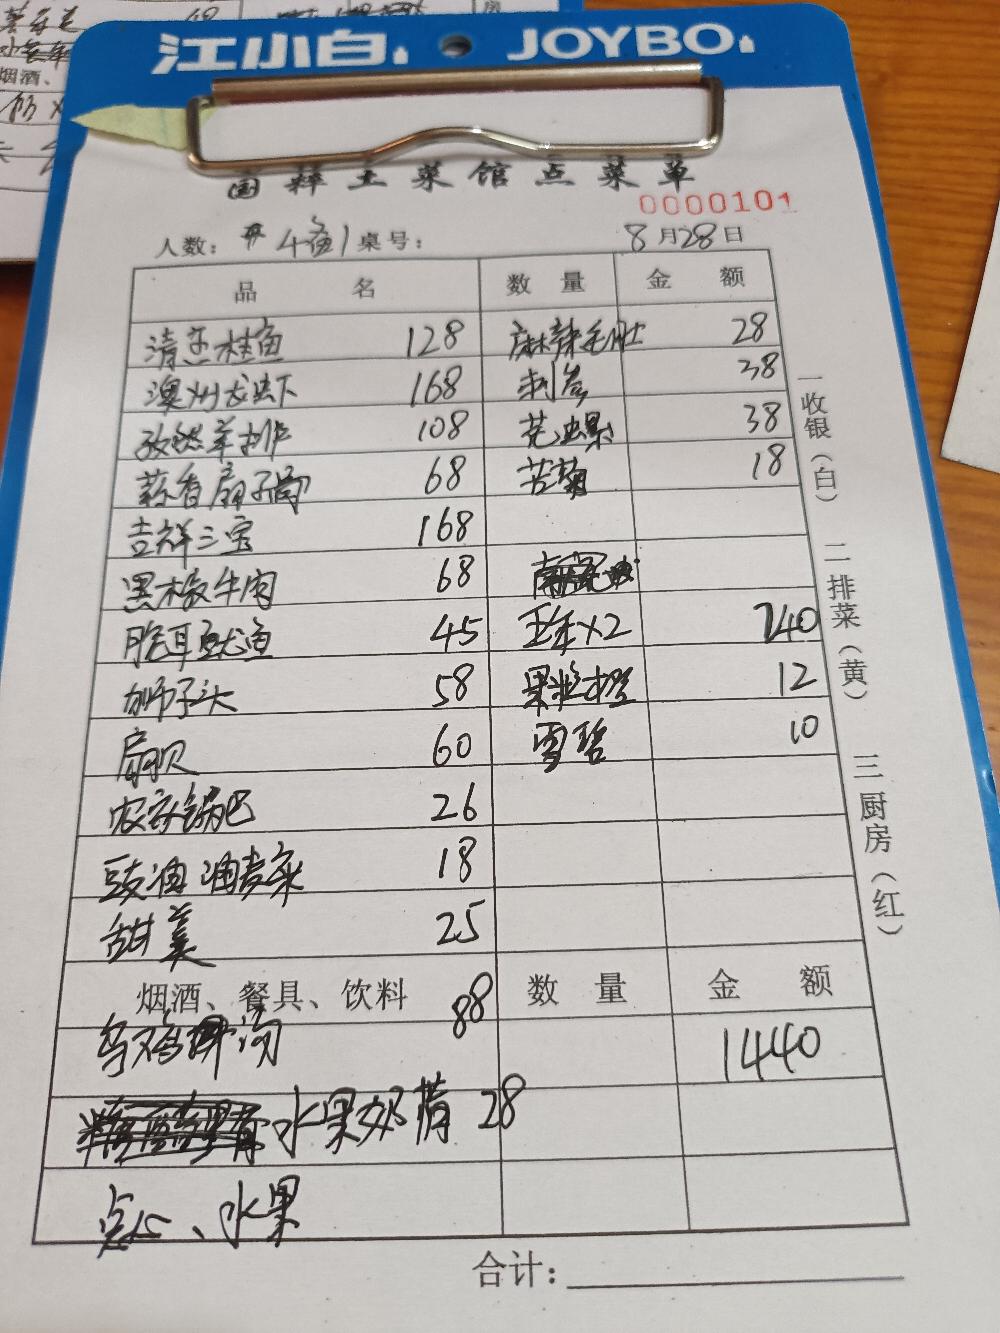 江小白 JOYBO
国粹土菜馆点菜单
0000101
人数： 桌号： 8月28日
品 名 数 量 金 额
清蒸桂鱼 128 麻辣毛肚 28
澳州龙虾 168 刺参 38
孜然羊排 108 花螺 38
蒜香扇子骨 68 苦菊 18
吉祥三宝 168
黑椒牛肉 68
脆耳鱿鱼 45 ×2 240
狮子头 58 果粒橙 12
扇贝 60 雪碧 10
农家锅巴 26
豉油油麦菜 18
甜羹 25
烟酒、餐具、饮料 88 数 量 金 额
乌鸡 汤 1440
水果奶 28
点心、水果
合计：
一收银（白）
二排菜（黄）
三厨房（红）
烟酒、